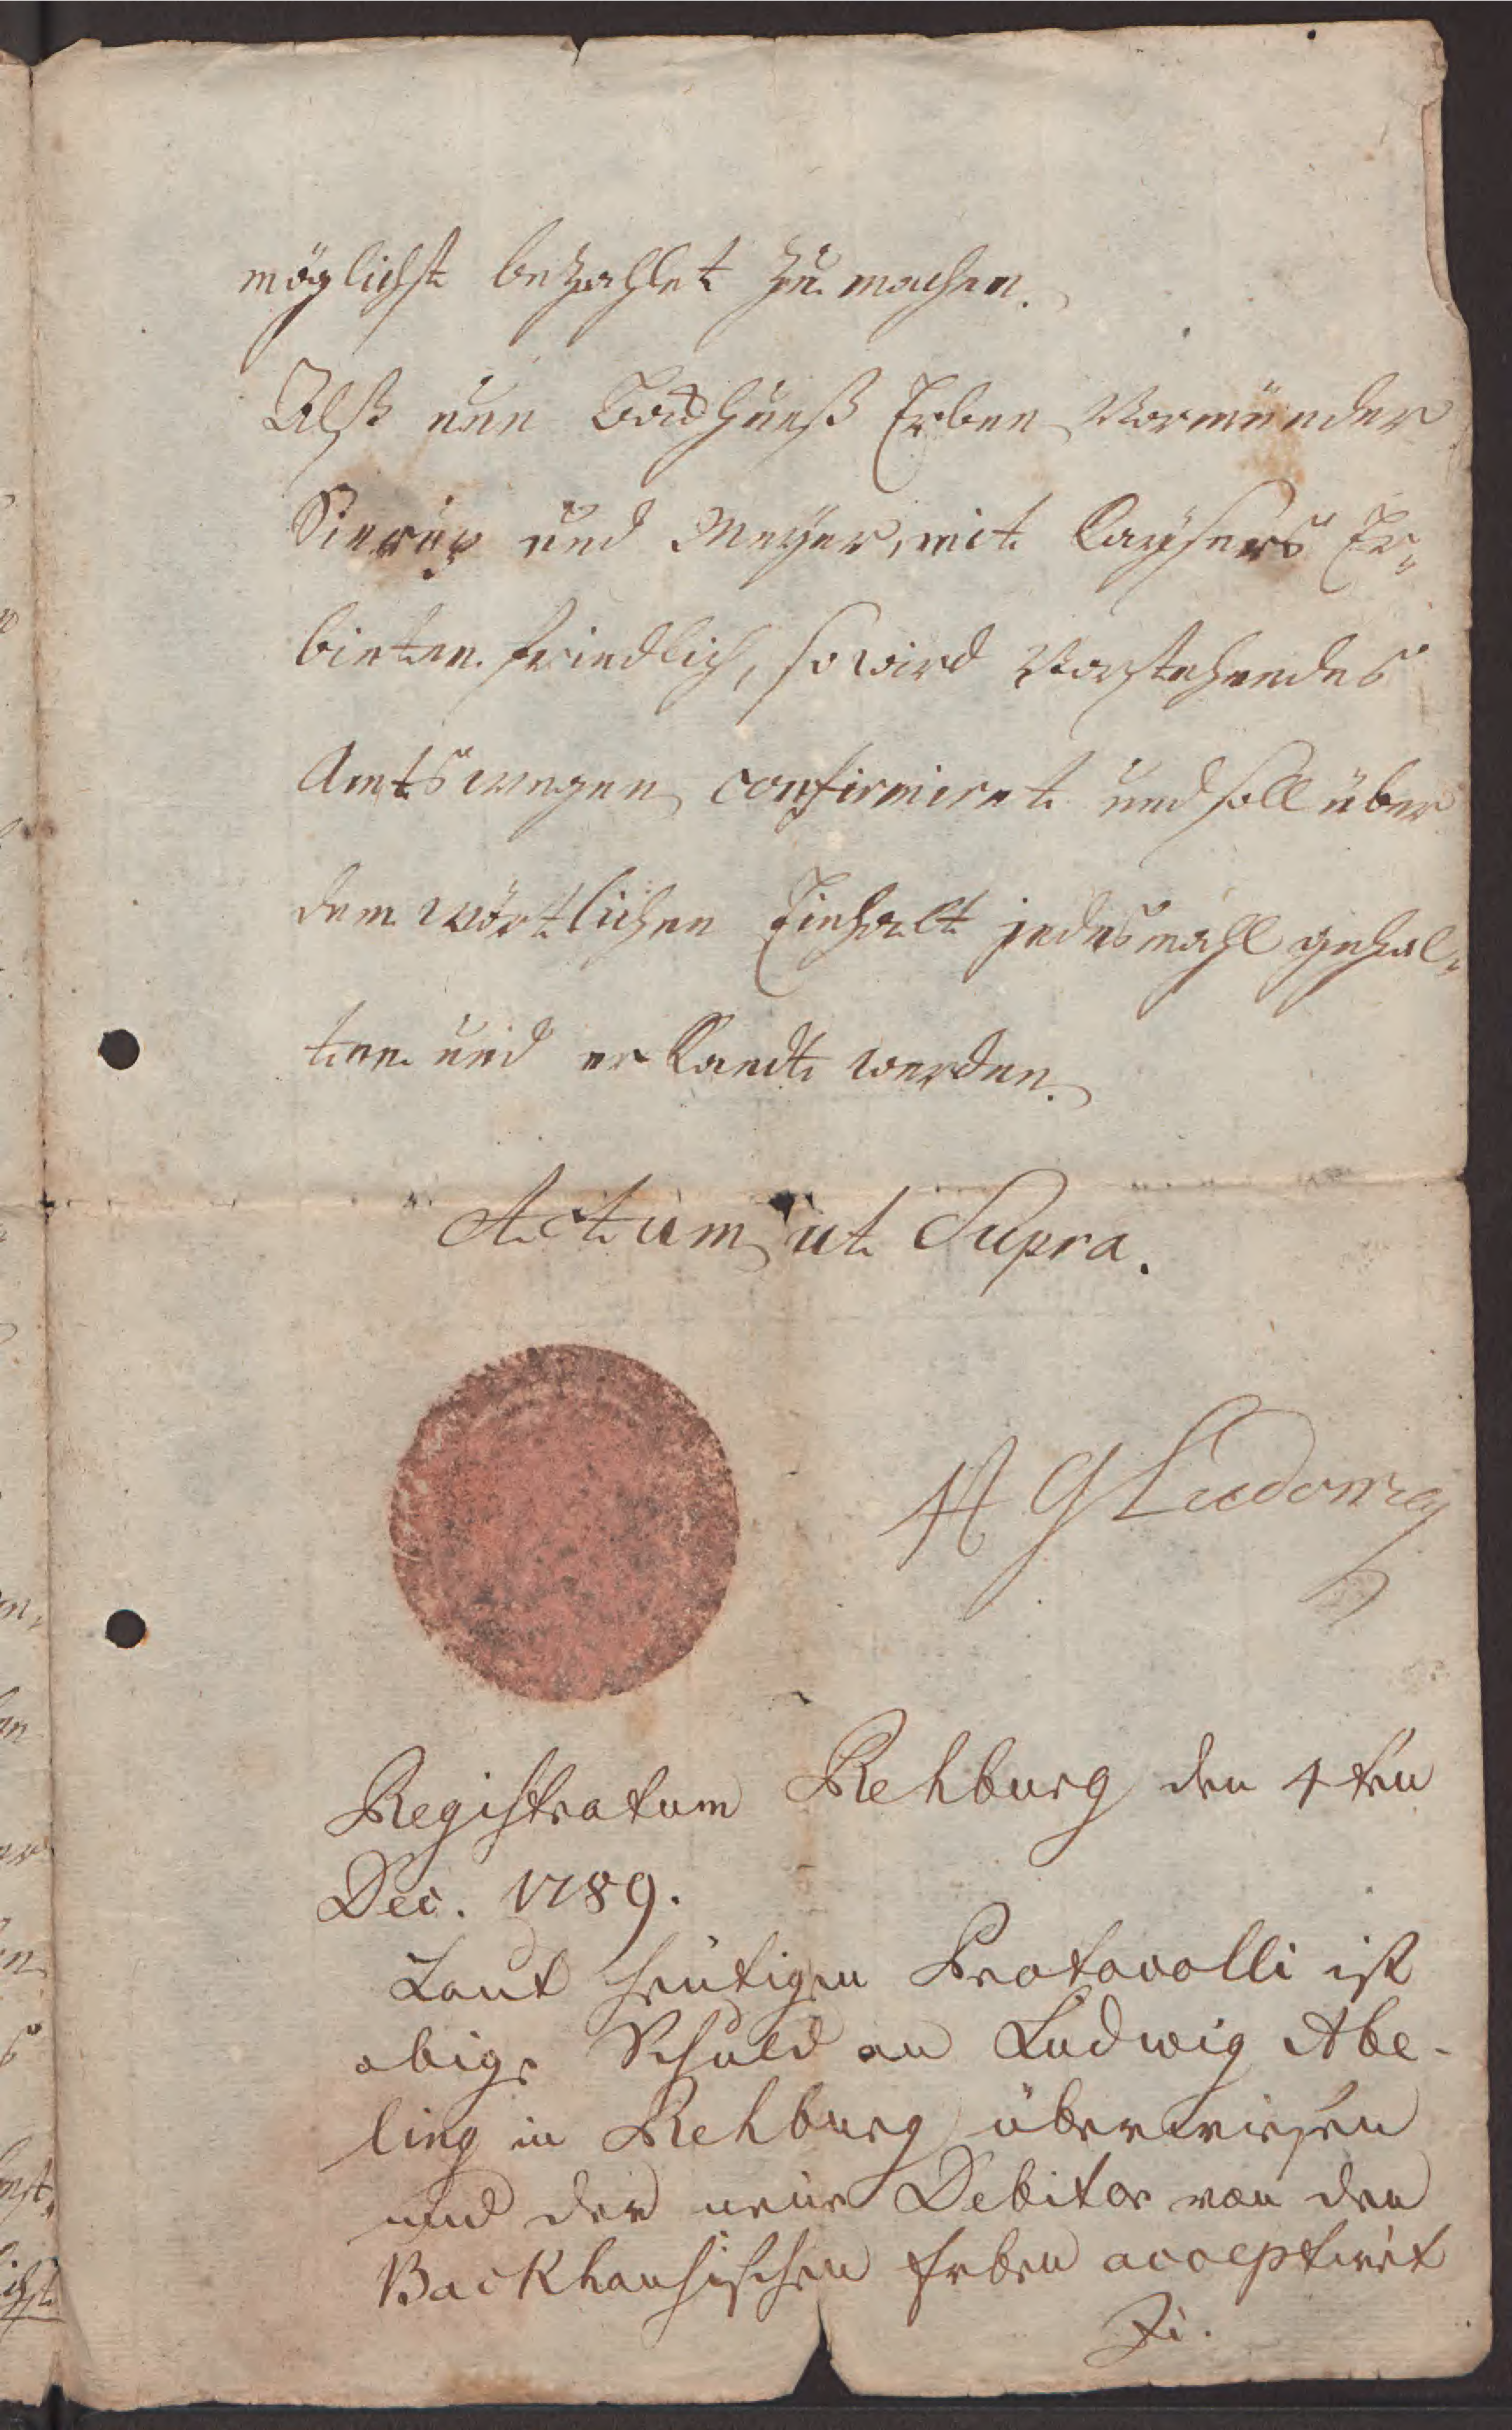 möglichst bezahlet zu machen.
Alß nun Backhuß Erben Vormünder
und Meyer, mit Caysers Er„
bieten friedlich, so wird Vorstehendes
Amtswegen confirmiret und soll über
dem wörtlichen Einhalt jedesmahl gehal„
ten und erkandt werden.
Actum ut Supra.
G Ludowieg
Registratum Rehburg den 4ten
Dec. 1789.
Laut heutigen Protocolli ist
obige Schuld an Ludwig Abe-
ling in Rehburg überwiesen
und der neue Debitor von den
Backhausischen Erben acceptirt